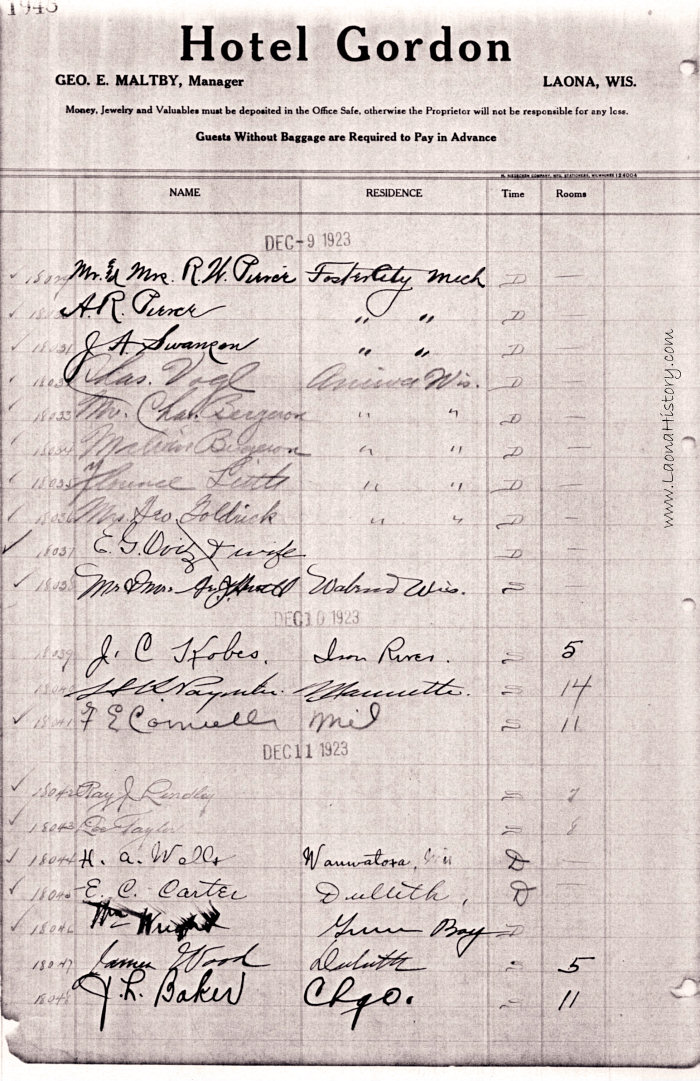 1943
Hotel Gordon
GEO. E. MALTBY, Manager LAONA, WIS.
Money, Jewelry and Valuables must be deposited in the Office Safe, otherwise the Proprietor will not be responsible for any loss.
Guests Without Baggage are Required to Pay in Advance
NAME RESIDENCE Time Rooms
DEC-9 1923
Mr. & Mrs. R.W. Foster City Mich D —
A.R. " " D —
J A Swanson " " D —
Chas. Vogl Aniwa Wis. D —
Mr. Chas. Bergeron " " D —
Bergeron " " D —
Florence " " D —
Mrs. Geo. Goldrick " " D —
18037 E. G. & wife D —
18038 Mr & Mrs. Wis. S
DEC 10 1923
18039 J. C Kobes. Iron River. S 5
18040 Paynter. Marinette. S 14
18041 F E Mil S 11
DEC 11 1923
18042 Ray J Lindley S 7
18043 Taylor S 8
18044 H. A. Wells Wauwatosa, Wis D —
18045 E. C. Carter Dulleth, D —
18046 Wm Wright Green Bay D —
18047 James Wood Duluth S 5
18048 J. L. Baker Chgo. S 11
www.LaonaHistory.com